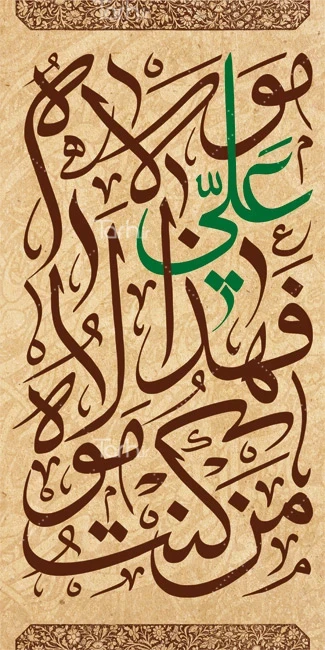 من كنت
مولاه
فهذا
عليّ
مولاه